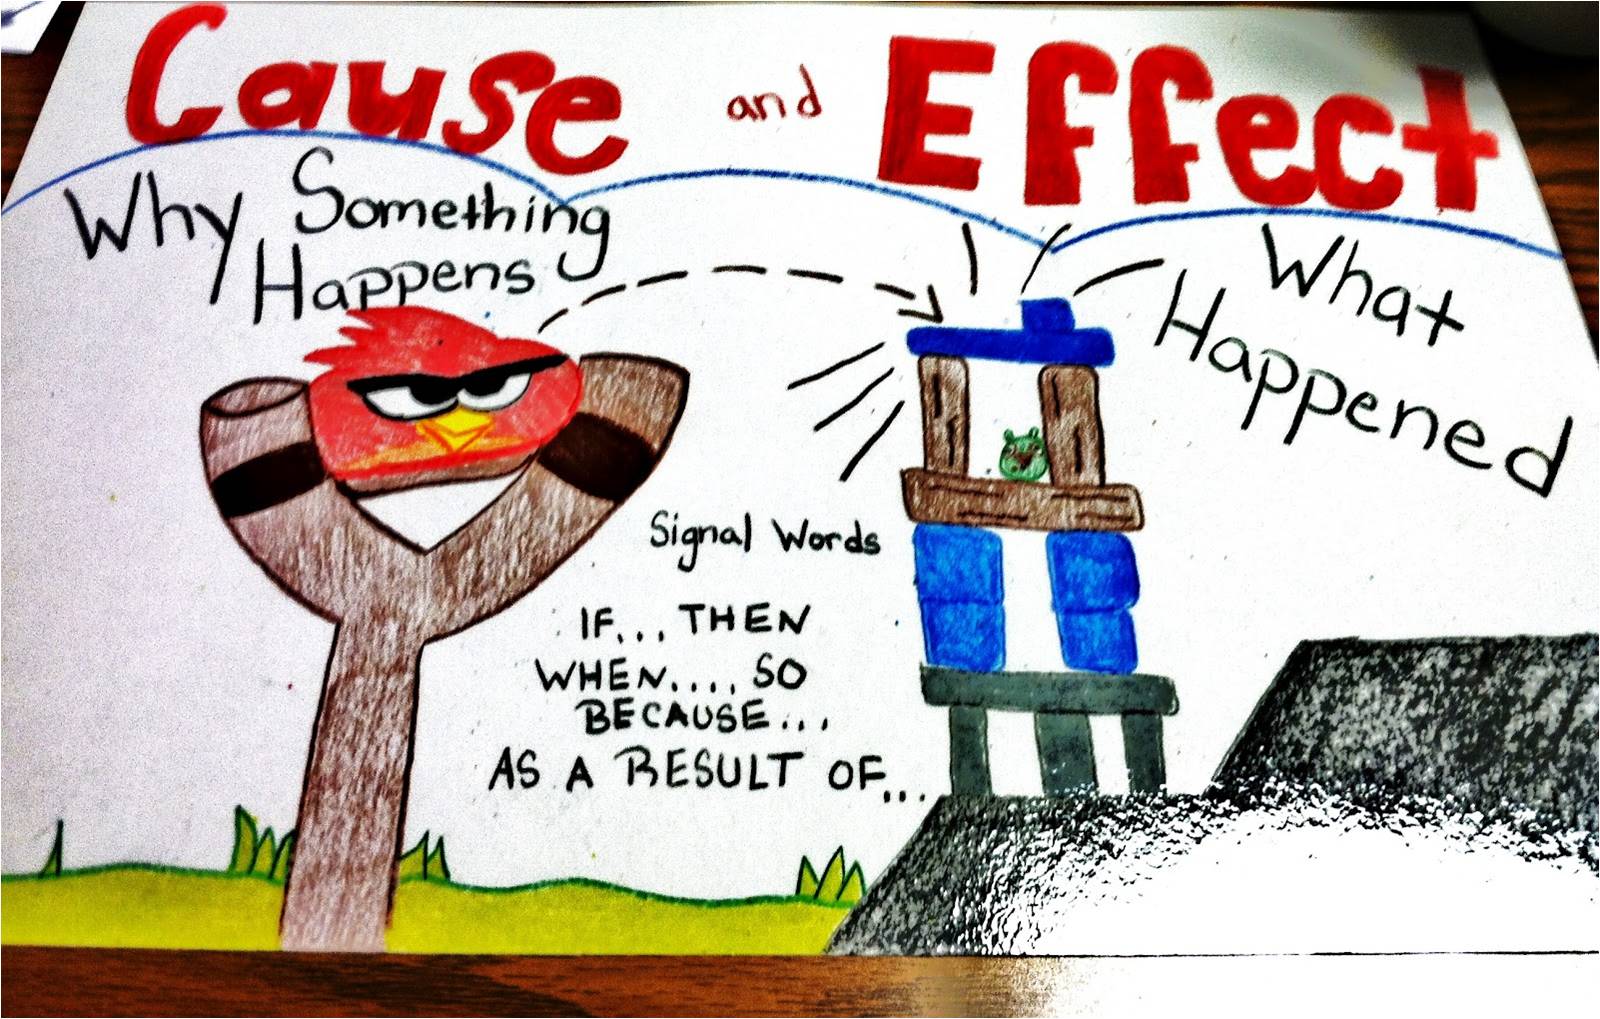 Cause and Effect
Why Something
Happens
What
Happened
Signal Words
IF... THEN
WHEN.... SO
BECAUSE...
AS A RESULT OF...